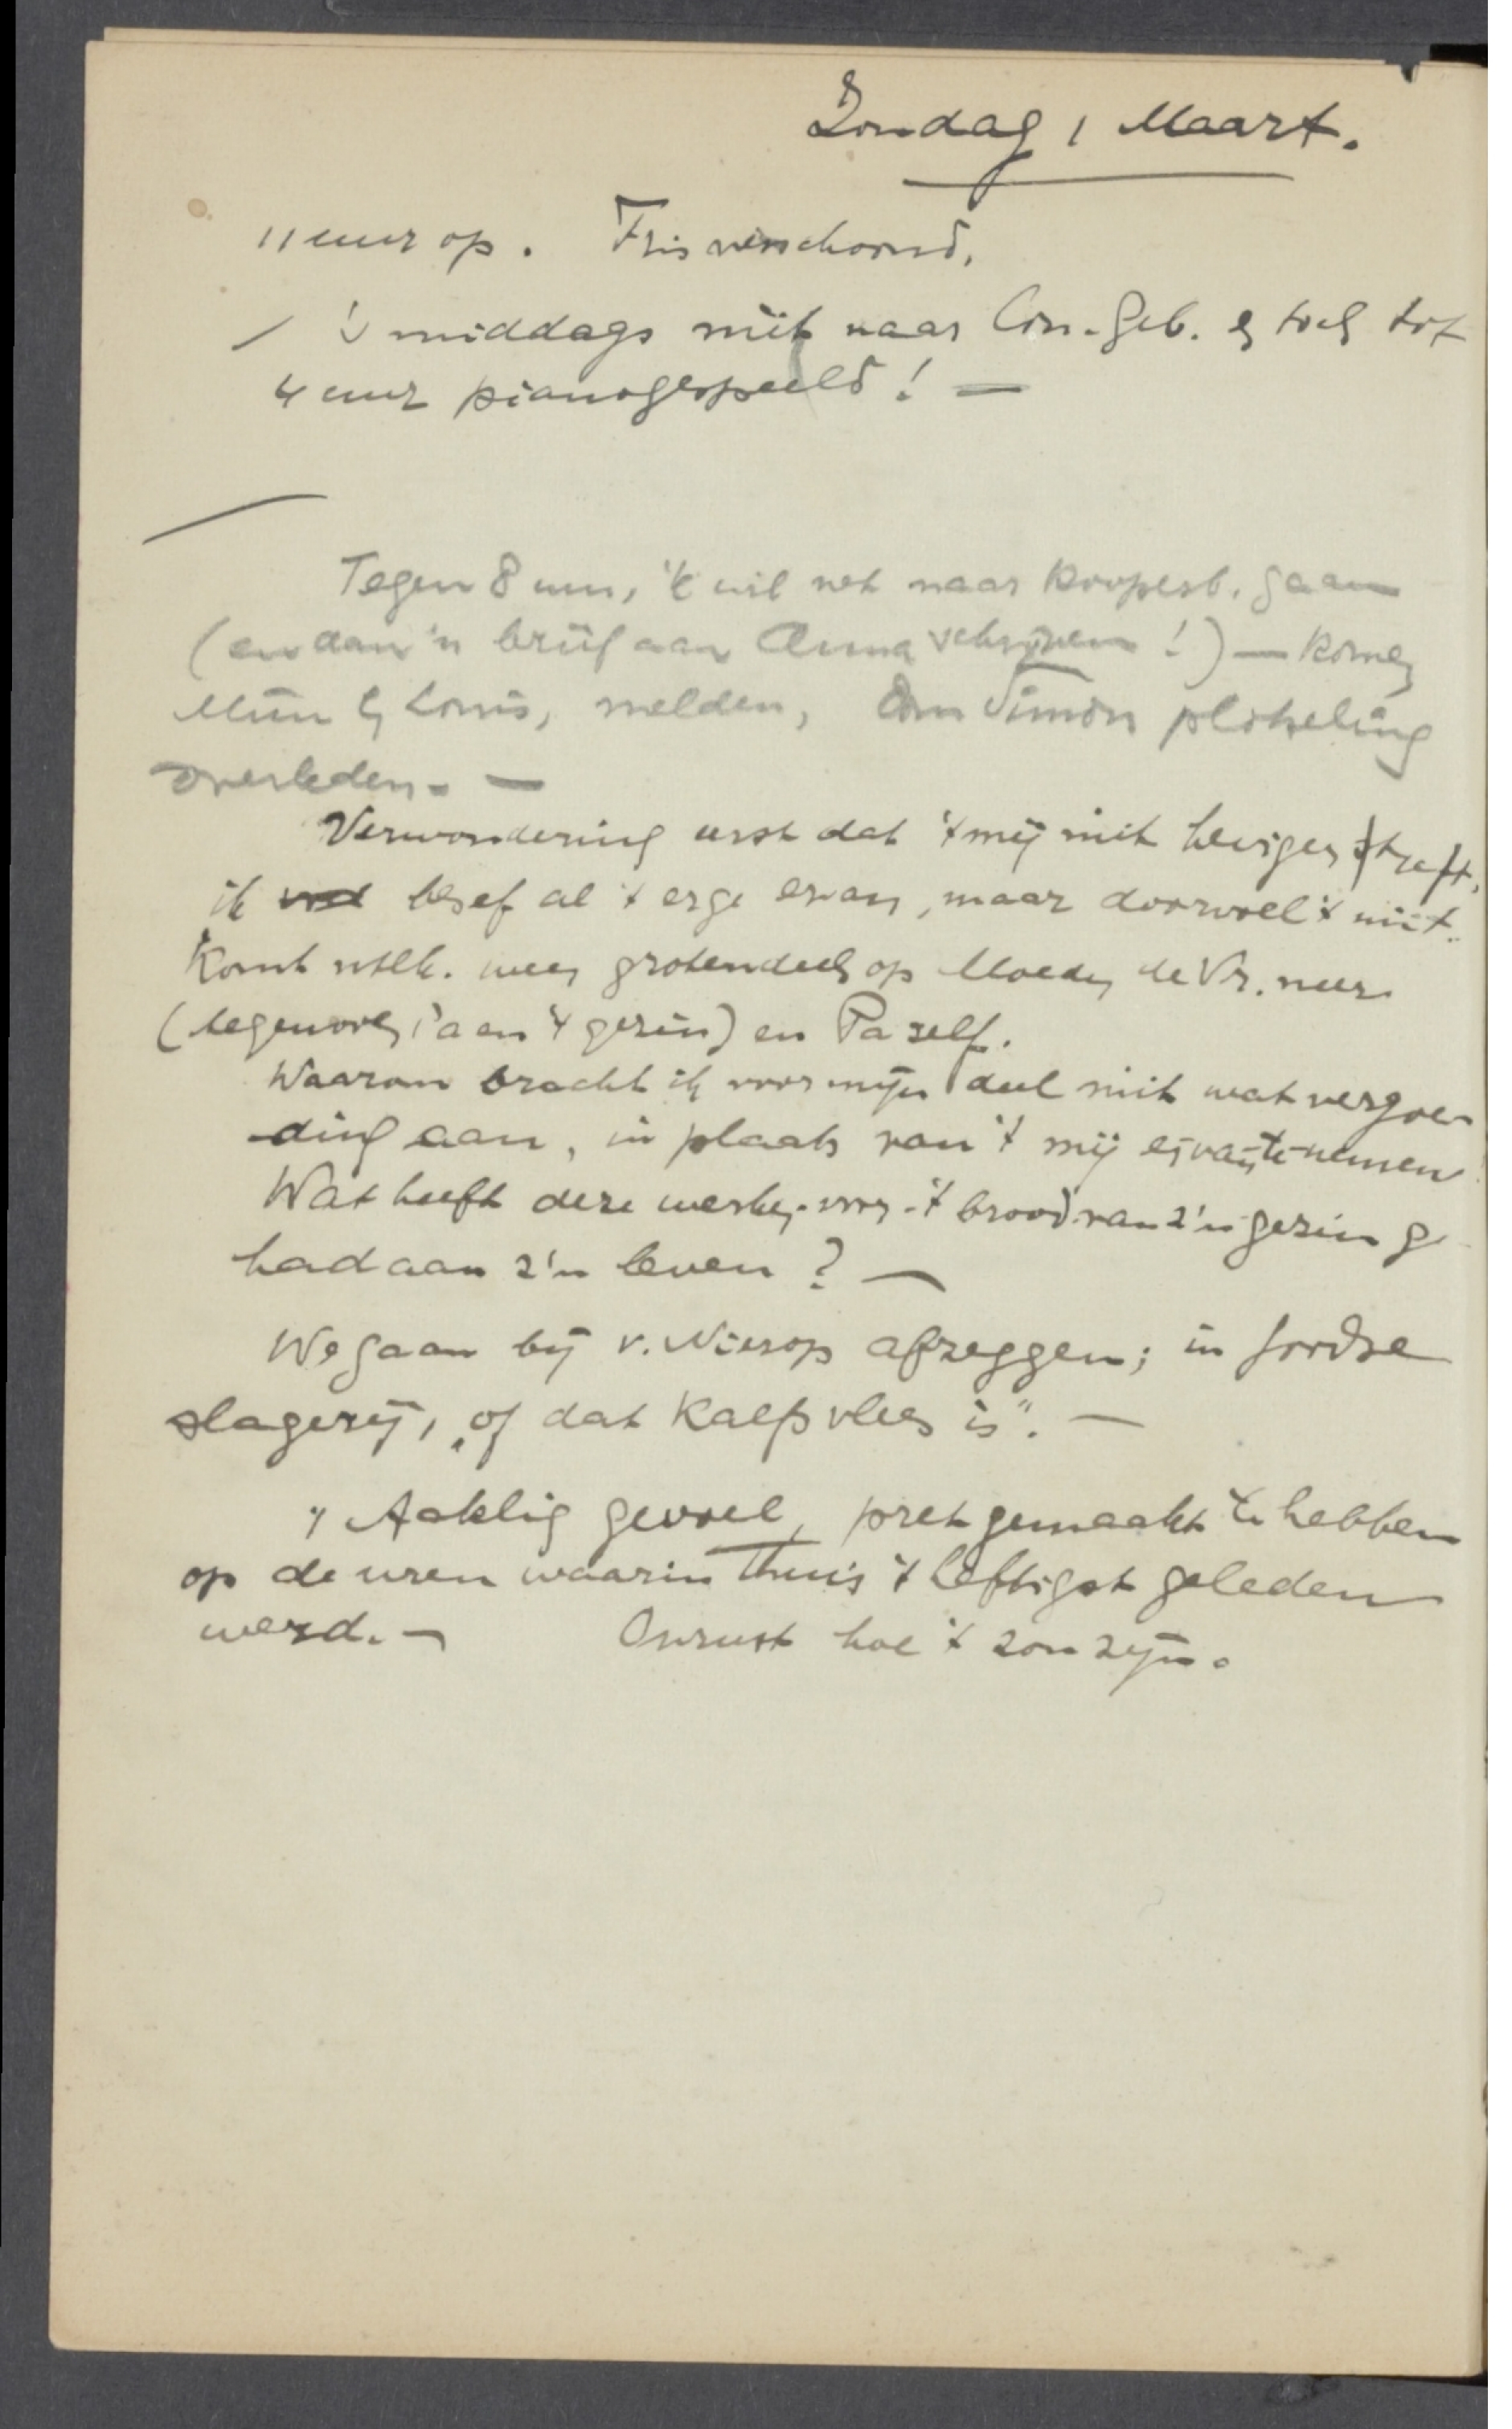 Zondag 1 Maart.
11 uur op. Fris verschoond.
's middags niet naar Con.-Geb. & toch tot
4 uur pianogespeeld! —
Tegen 8 uur, 'k wil net naar Koopersb. gaan
(en dan 'n brief aan Anna schrijven!) — komen
Mien & Louis, melden, Oom Simon plotseling
overleden. —
Verwondering eerst dat 't mij niet heviger treft,
ik besef al 't erge ervan, maar doorvoel 't niet.
Komt ntlk. weer grotendeels op Moeder de Vr. neer
(tegenover 't gezin) en Pa zelf.
Waarom bracht ik voor mijn deel niet wat vergoe-
ding aan, in plaats van 't mij ervan te nemen
Wat heeft deze werker-voor-'t brood van z'n gezin ge-
had aan z'n leven? —
We gaan bij v. Nierop afzeggen; in Joodse
slagerij, „of dat Kalfsvlees is". —
Aaklig gevoel, pret gemaakt te hebben
op de uren waarin thuis 't heftigst geleden
werd. — Onrust hoe 't zou zijn.